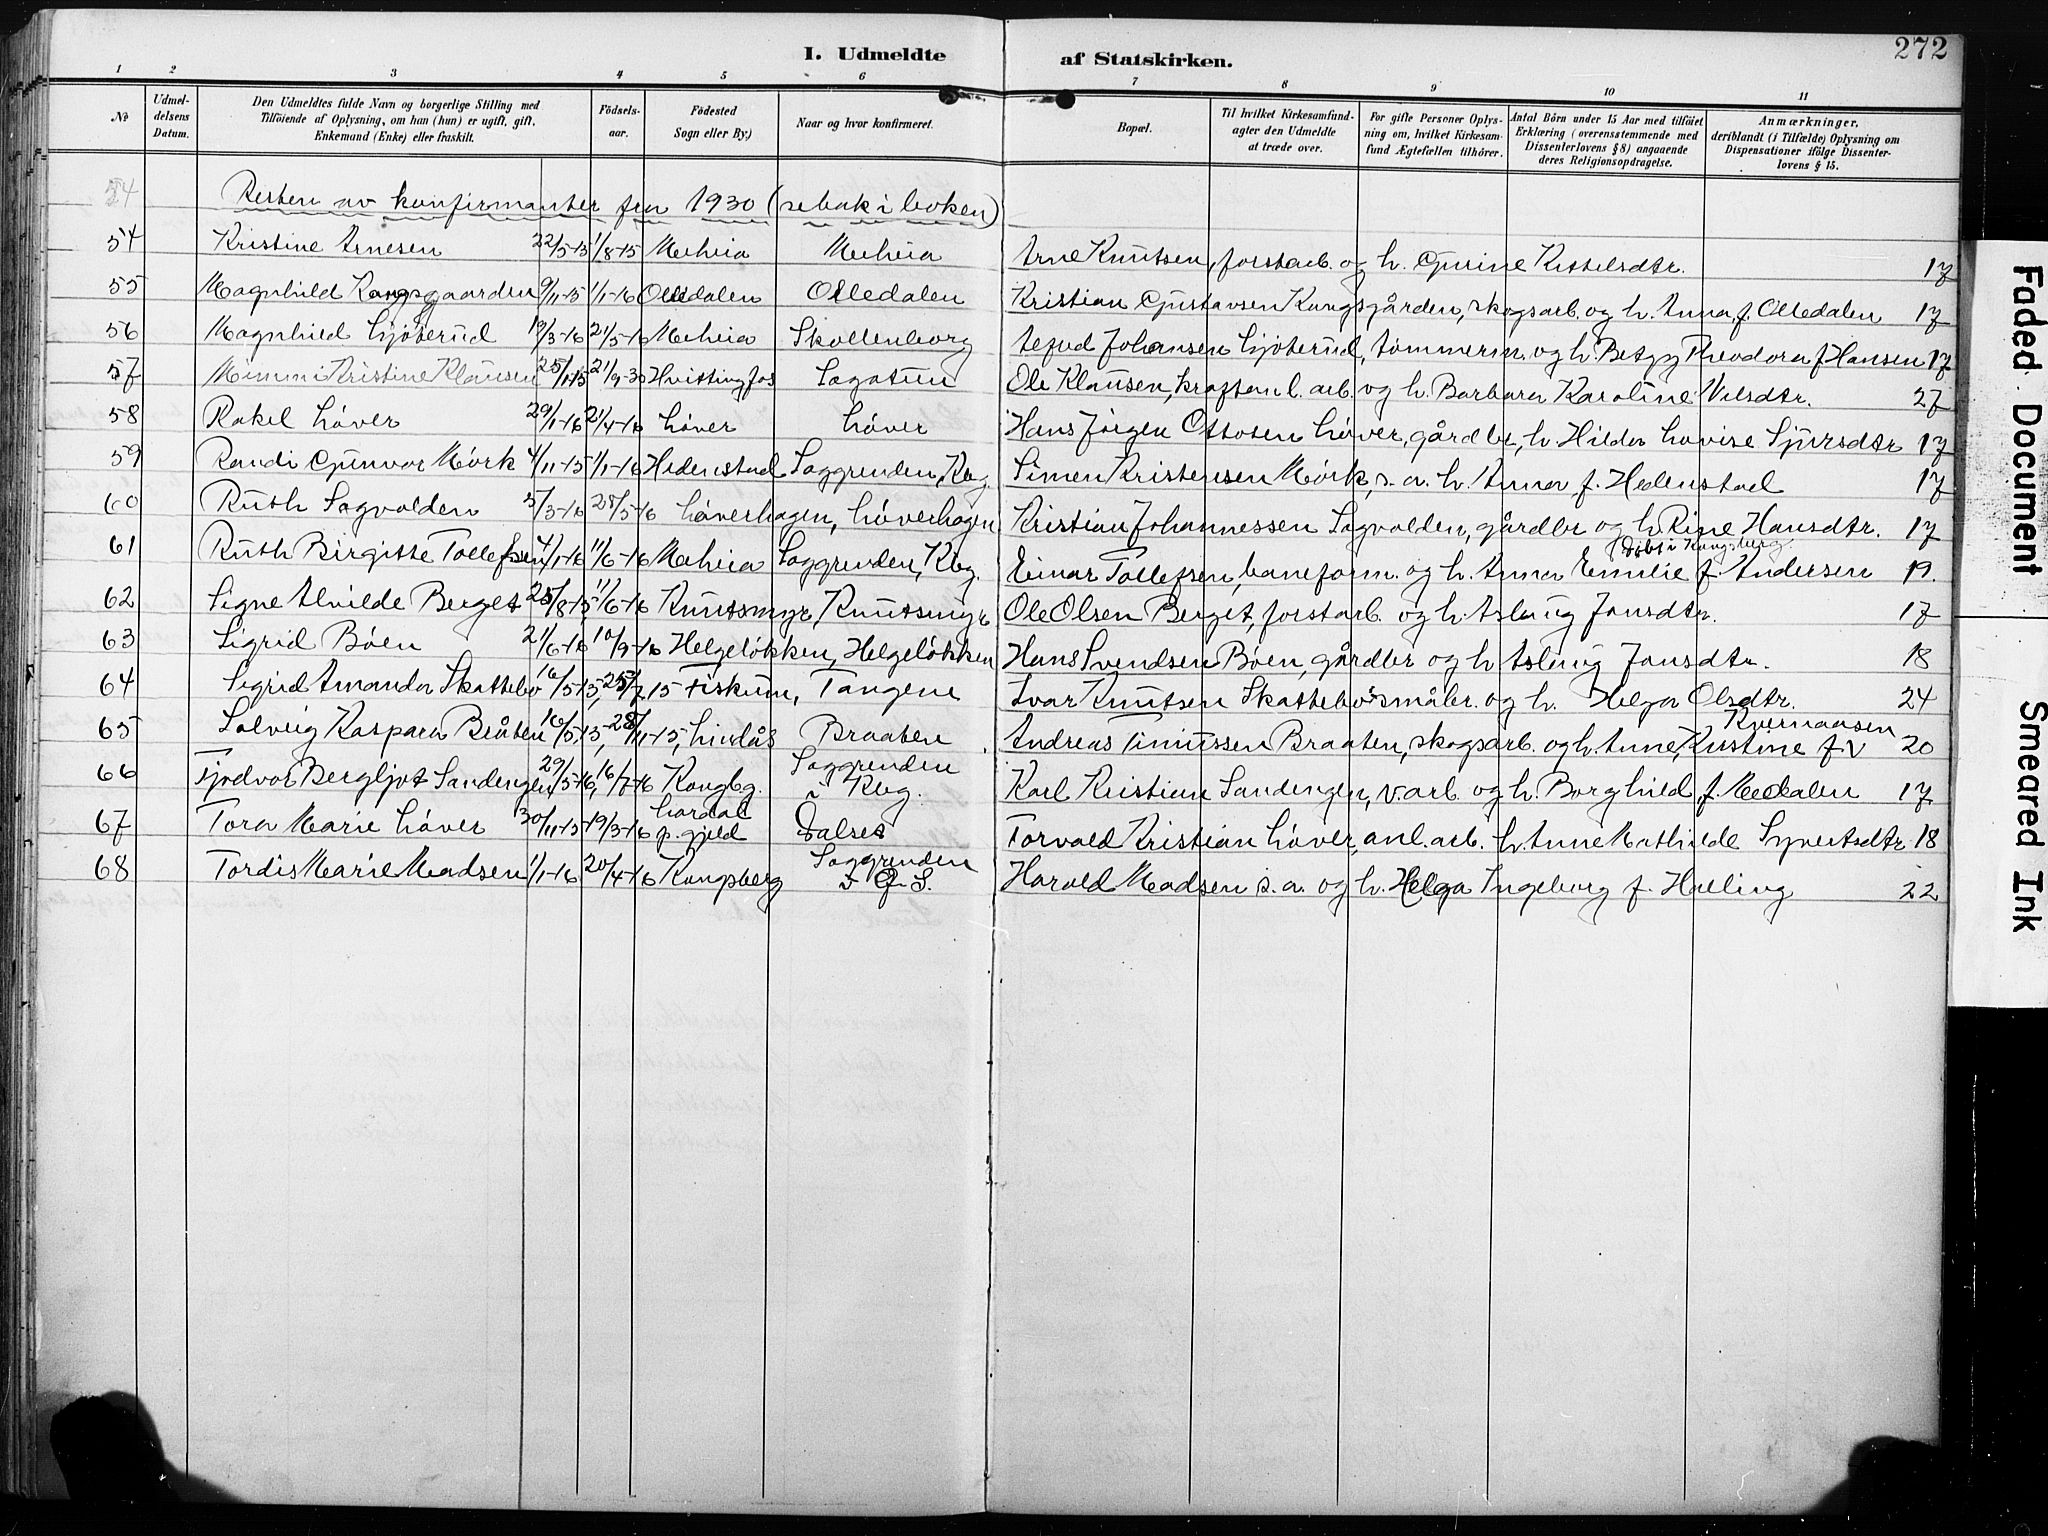 272
I. Udmeldte af Statskirken.
1 2 3 4 5 6 7 8 9 10 11
No
Udmeldelsens Datum.
Den Udmeldtes fulde Navn og borgerlige Stilling med
Tilföiende af Oplysning, om han (hun) er ugift, gift,
Enkemand (Enke) eller fraskilt.
Födselsaar.
Födested
Sogn eller By.)
Naar og hvor konfirmeret.
Bopæl.
Til hvilket Kirkesamfund-
agter den Udmeldte
at træde over.
For gifte Personer Oplys-
ning om, hvilket Kirkesam-
fund Ægtefællen tilhörer.
Antal Börn under 15 Aar med tilföiet
Erklæring (overensstemmende med
Dissenterlovens § 8) angaaende
deres Religionsopdragelse.
Anmærkninger,
deriblandt (i Tilfælde) Oplysning om
Dispensationer ifölge Dissenter-
lovens § 15.
54 Resten av konfirmanter fra 1930 (se bak i boken)
54 Kristine Arnesen 22/5-15 1/8-15 Meheia Meheia Arne Knutsen, forstarb. og h. Gurine Kittelsdtr. 17
55 Magnhild Kongsgaarden 9/11-15 1/1-16 Olledalen Olledalen Kristian Gustavsen Kongsgården, skogsarb. og h. Anna, f. Olledalen 17
56 Magnhild Ljøterud 19/3-16 21/5-16 Meheia Skollenborg Johansen Ljøterud, tømmerm. og h. Betzy Theodora f. Hansen 17
57 Mimmi Kristine Klausen 25/1-15 21/9-30 Hvittingfos Sagatun Ole Klausen, kraftanl. arb. og h. Barbara Karoline Nilsdtr. 27
58 Rakel Løver 29/1-16 2/4-16 Løver Løver Hans Jørgen Ottosen Løver, gårdbr, h. Hilda Lovise Sjursdtr 17
59 Randi Gunvor Mørk 4/11-15 1/1-16 Hedenstad Saggrenden, Kbg. Simen Kristensen Mørk, s. a. h. Anna f. Hedenstad 17
60 Ruth Sagvolden 5/3-16 28/5-16 Løverhagen, Løverhagen Kristian Johannessen Sagvolden, gårdbr og h. Rine Hansdtr. 17
(døbt i Kongsberg)
61 Ruth Birgitte Tollefsen 4/1-16 11/6-16 Meheia Saggrenden, Kbg. Einar Tollefsen, baneform. og h. Anna Emilie f. Andersen 19.
62 Signe Alvilde Berget 25/8-15 11/6-16 Knutsmyr, Knutsmyr Ole Olsen Berget, forstarb. og h. Aslaug Jonsdtr. 17
63 Sigrid Bøen 21/6-16 10/9-16 Helgeløkken, Helgeløkken Hans Svendsen Bøen, gårdbr og h. Aslaug Jonsdtr. 18
64 Sigrid Amanda Skattebo 16/5-15, 25/7-15 Fiskum, Tangene Ivar Knutsen Skattebo småbr. og h. Helga Olsdtr. 24
65 Solveig Kaspara Bråten 10/5-15, 28/11-15, Lindås Braaten Andreas Braaten, skogsarb. og h. Anne, Kristine f. Kvernaasen 20
66 Tjodvor Bergljot Sandengen 29/5-16, 16/7-16 Kongbg. Saggrenden v Kbg. Karl Kristian Sandengen, v. arb. og h. Borghild f. Medalen 17
67 Tora Marie Løver 30/11-15 19/3-16 Lardal p. gjeld Dalset Torvald Kristian Løver, anl. arb. h. Anne Mathilde Syvertsdtr 18
68 Tordis Marie Madsen 1/1-16 20/4-16 Kongsberg Saggrenden v Ø. S. Harald Madsen s. a. og h. Helga Ingeborg f. Halling 22
Faded Document
Smeared Ink